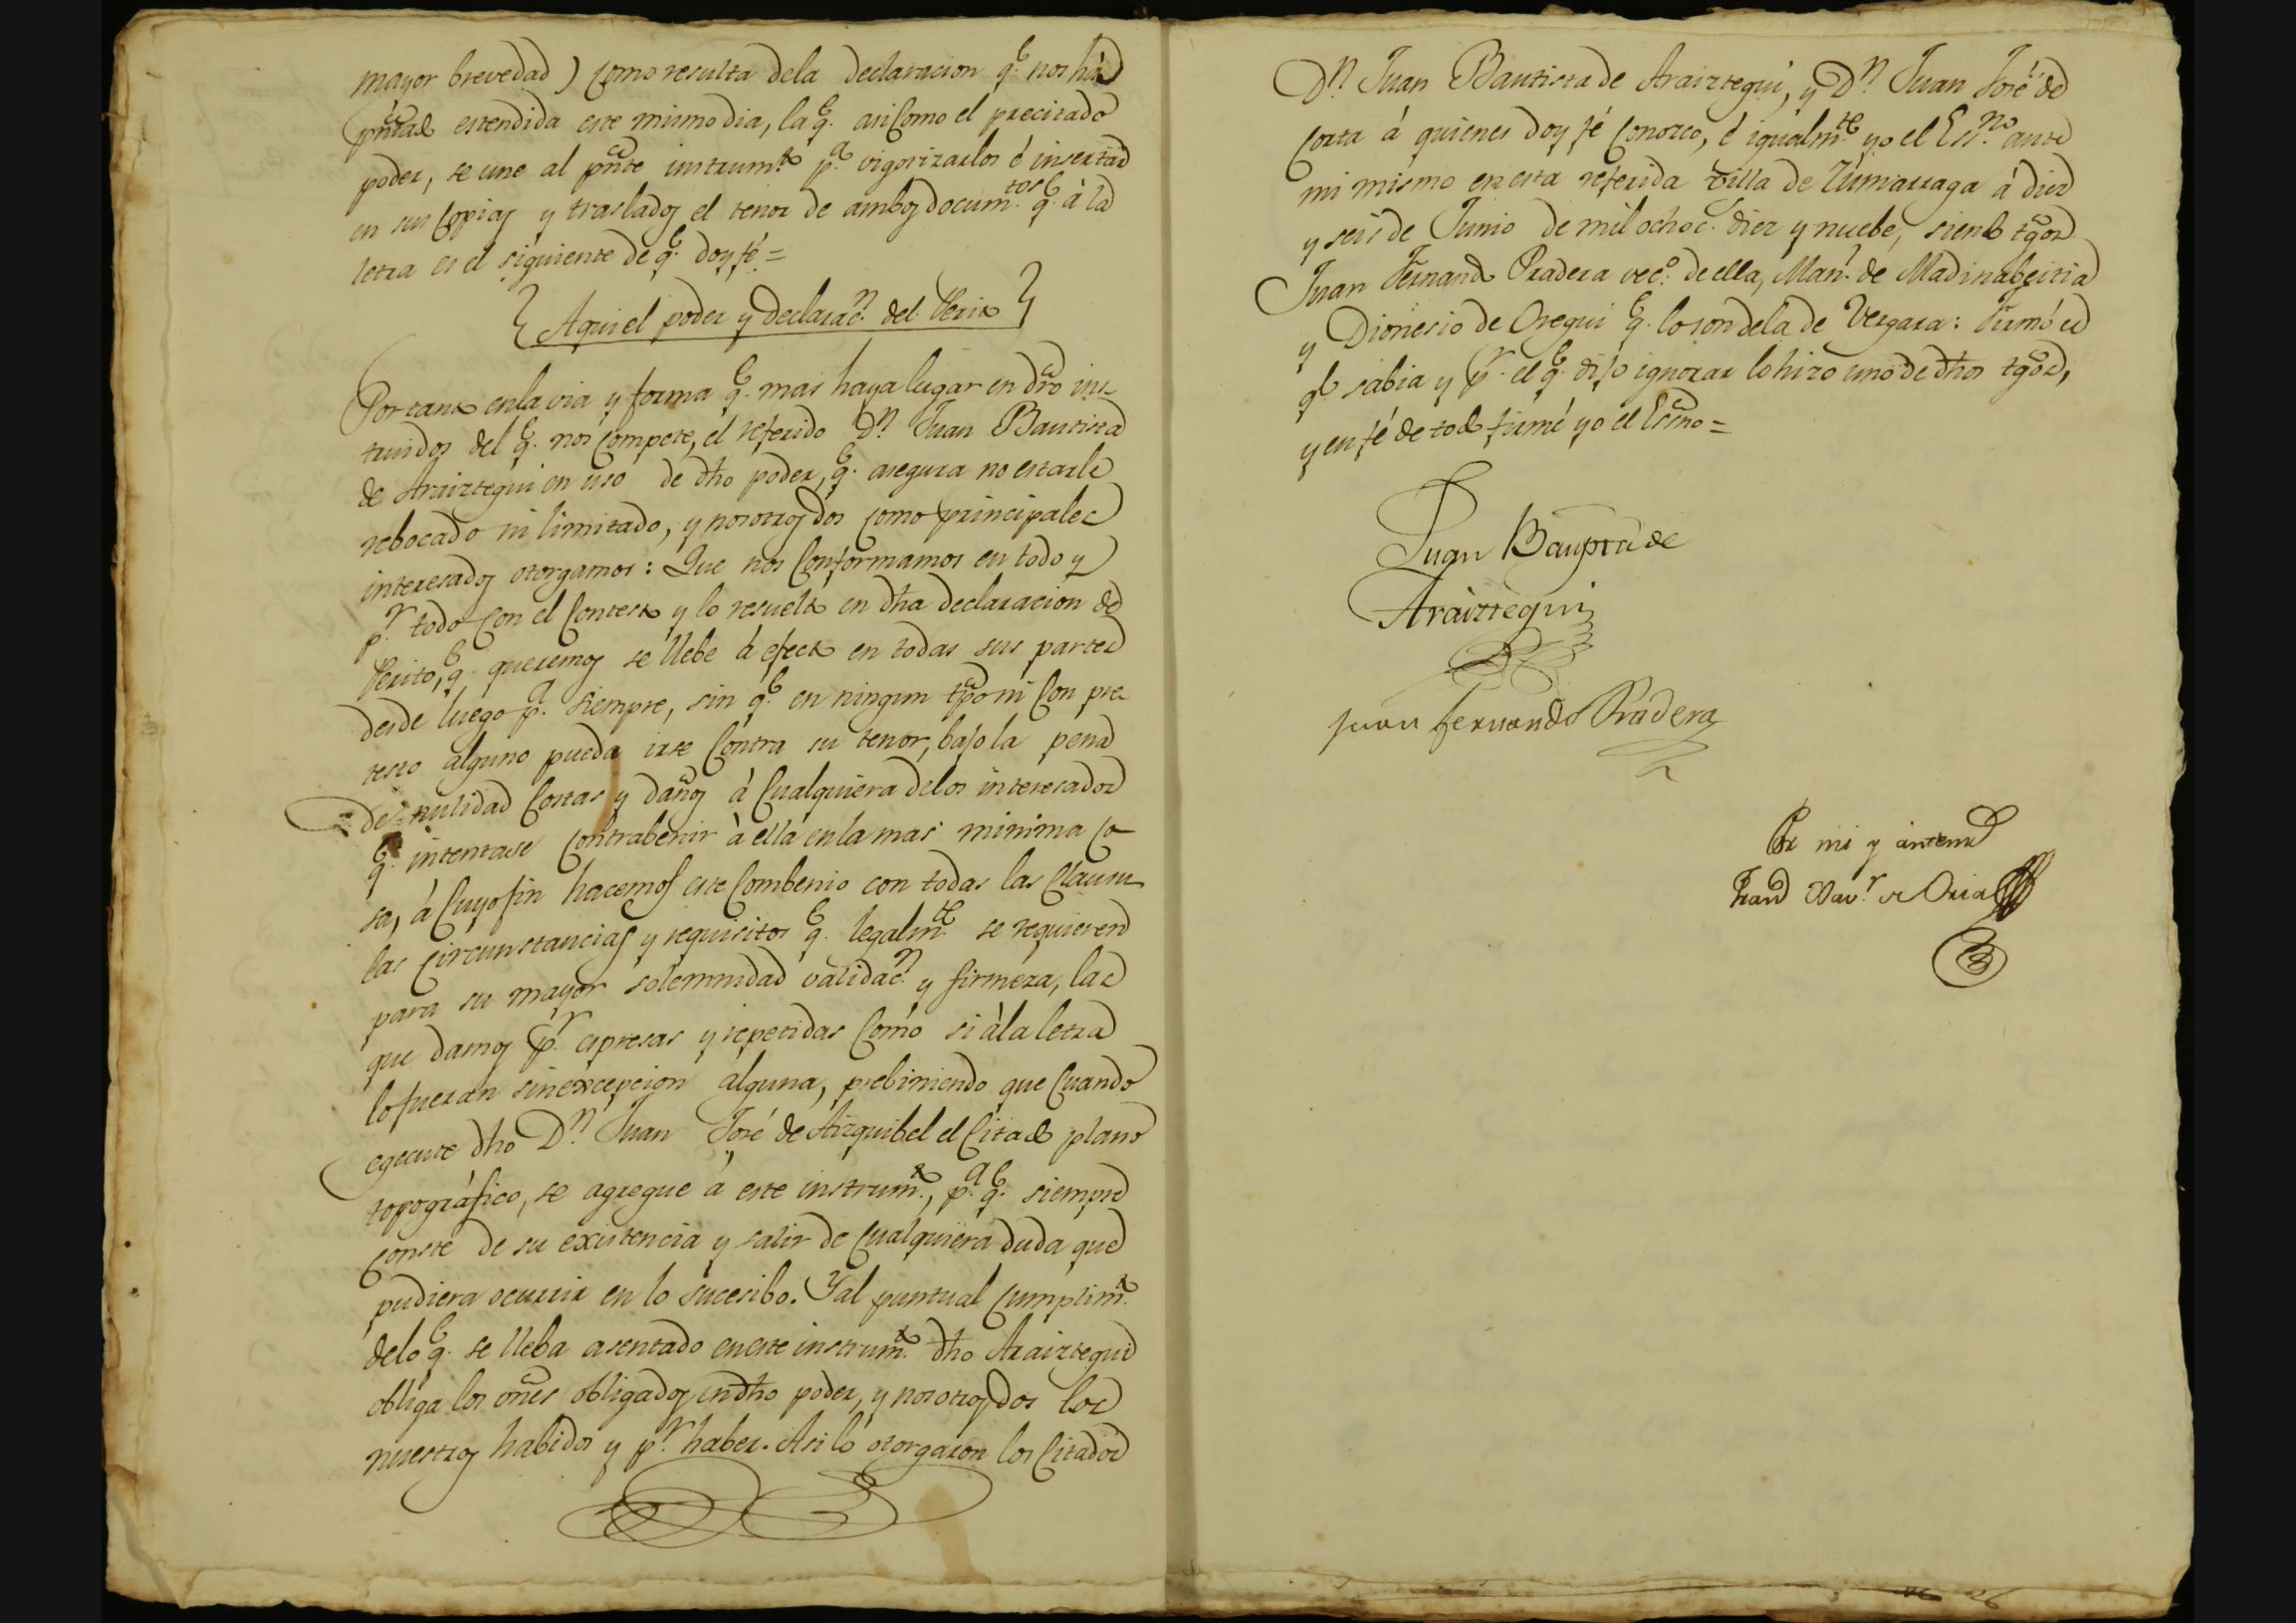 mayor brevedad) como resulta dela declaracion q.e nos há
pntado estendida este mismo dia, la q.e asi como el precitado
poder, se une al pnte instrum.to p.a vigorizarlos é insertar
en sus copias y traslados el tenor de ambos docum.tos q.e à la
letra es el siguiente de q.e doy fé =
{ Aqui el poder y declarac.n del Perito }
Por tanto en la via y forma q.e mas haya lugar en dro ins-
truidos del q.e nos compete, el referido D.n Juan Bautista
de Araiztegui en uso de dho poder, q.e asegura no estarle
rebocado ni limitado, y nosotros dos como principales
interesados otorgamos: Que nos conformamos en todo y
p.r todo con el contesto y lo resuelto en dha declaracion de
Perito, q.e queremos se llebe á efecto en todas sus partes
desde luego p.a siempre, sin q.e en ningun tpo ni con pre-
testo alguno pueda irse contra su tenor, bajo la pena
de nulidad costas y daños à cualquiera delos interesados
q.e intentase contrabenir à ella en la mas minima co-
sa, á cuyo fin hacemos este combenio con todas las clausu-
las circunstancias y requisitos q.e legalm.te se requieren
para su mayor solemnidad validac.n y firmeza, las
que damos p.r espresas y repetidas como si à la letra
lo fueran sin excepcion alguna, prebiniendo que cuando
egecute dho D.n Juan José de Aizquibel el citado plano
topográfico, se agregue á este instrum.to, p.a q.e siempre
conste de su existencia y salir de cualquiera duda que
pudiera ocurrir en lo sucesibo. Y al puntual cumplim.to
delo q.e se lleba asentado en este instrum.to dho Araiztegui
obliga los vnes obligados en dho poder, y nosotros dos los
nuestros habidos y p.r haber. Asi lo otorgaron los citados
D.n Juan Bautista de Araiztegui, y D.n Juan José de
Corta á quienes doy fé conozco, é igualm.te yo el Es.no ante
mi mismo en esta referida Villa de Zumarraga á diez
y seis de Junio de mil ochoc.s diez y nuebe, siendo tgos
Juan Fernando Pradera vec.o de ella, Man.l de Madinabeitia
y Dionisio de Oregui q.e lo son dela de Vergara: Firmó el
q.e sabia y p.r el q.e dijo ignorar lo hizo uno de dhos tgos,
y en fé de todo firmé yo el Esno =
Juan Baupta de
Araiztegui
Juan Fernando Pradera
Por mi y antemi